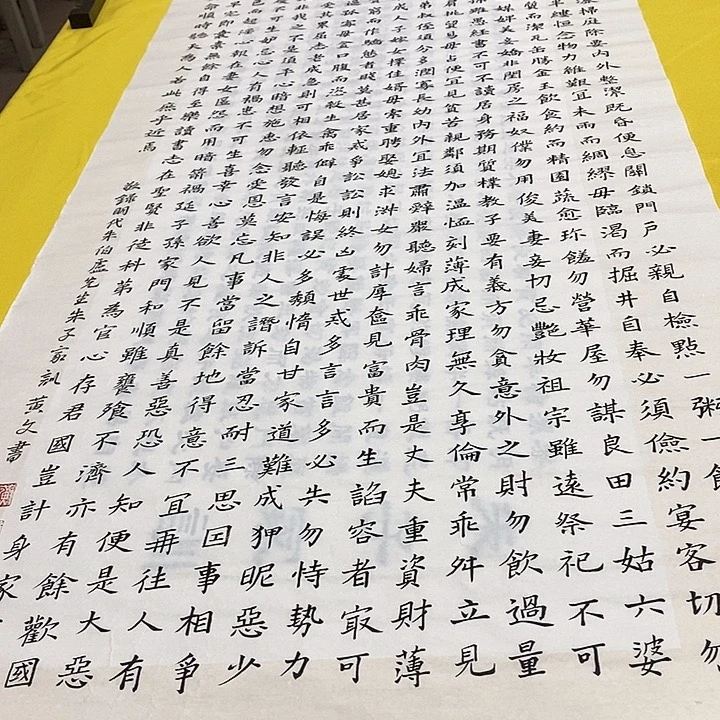 掃庭除要內外整潔既昏便息關鎖門戶必親自檢點一粥一飯
半縷恆念物力維艱宜未雨而綢繆毋臨渴而掘井自奉必須儉約宴客切勿
質而潔瓦缶勝金玉飲食約而精園蔬愈珍饈勿營華屋勿謀良田三姑六婆
媒婢美妾嬌非閨房之福奴僕勿用俊美妻妾切忌艷妝祖宗雖遠祭祀不可
孫雖愚經書不可不讀居身務期質樸教子要有義方勿貪意外之財勿飲過量
肩挑貿易毋占便宜見貧苦親鄰須加溫恤刻薄成家理無久享倫常乖舛立見
弟叔侄須分多潤寡長幼內外宜法肅辭嚴聽婦言乖骨肉豈是丈夫重資財薄
成人子嫁女擇佳婿毋索重聘娶媳求淑女勿計厚奩見富貴而生諂容者最可
貧窮而作驕態者賤莫甚居家戒爭訟訟則終凶處世戒多言言多必失勿恃勢力
逼孤寡毋貪口腹而恣殺生禽乖僻自是悔誤必多頹惰自甘家道難成狎昵惡少
受其累屈志老成急則可相依輕聽發言安知非人之譖訴當忍耐三思因事相爭
非我之不是須平心暗想施惠勿念受恩莫忘凡事當留餘地得意不宜再往人有
生妒忌心人有禍患不可生喜幸心善欲人見不是真善惡恐人知便是大惡
色而起淫心報在妻女匿怨而用暗箭禍延子孫家門和順雖饔飧不濟亦有餘歡國
早完即囊橐無餘自得至樂讀書志在聖賢非徒科第為官心存君國豈計身家
命順時聽天為人若此庶乎近焉
敬錄明代朱伯廬先生朱子家訓 黃文書